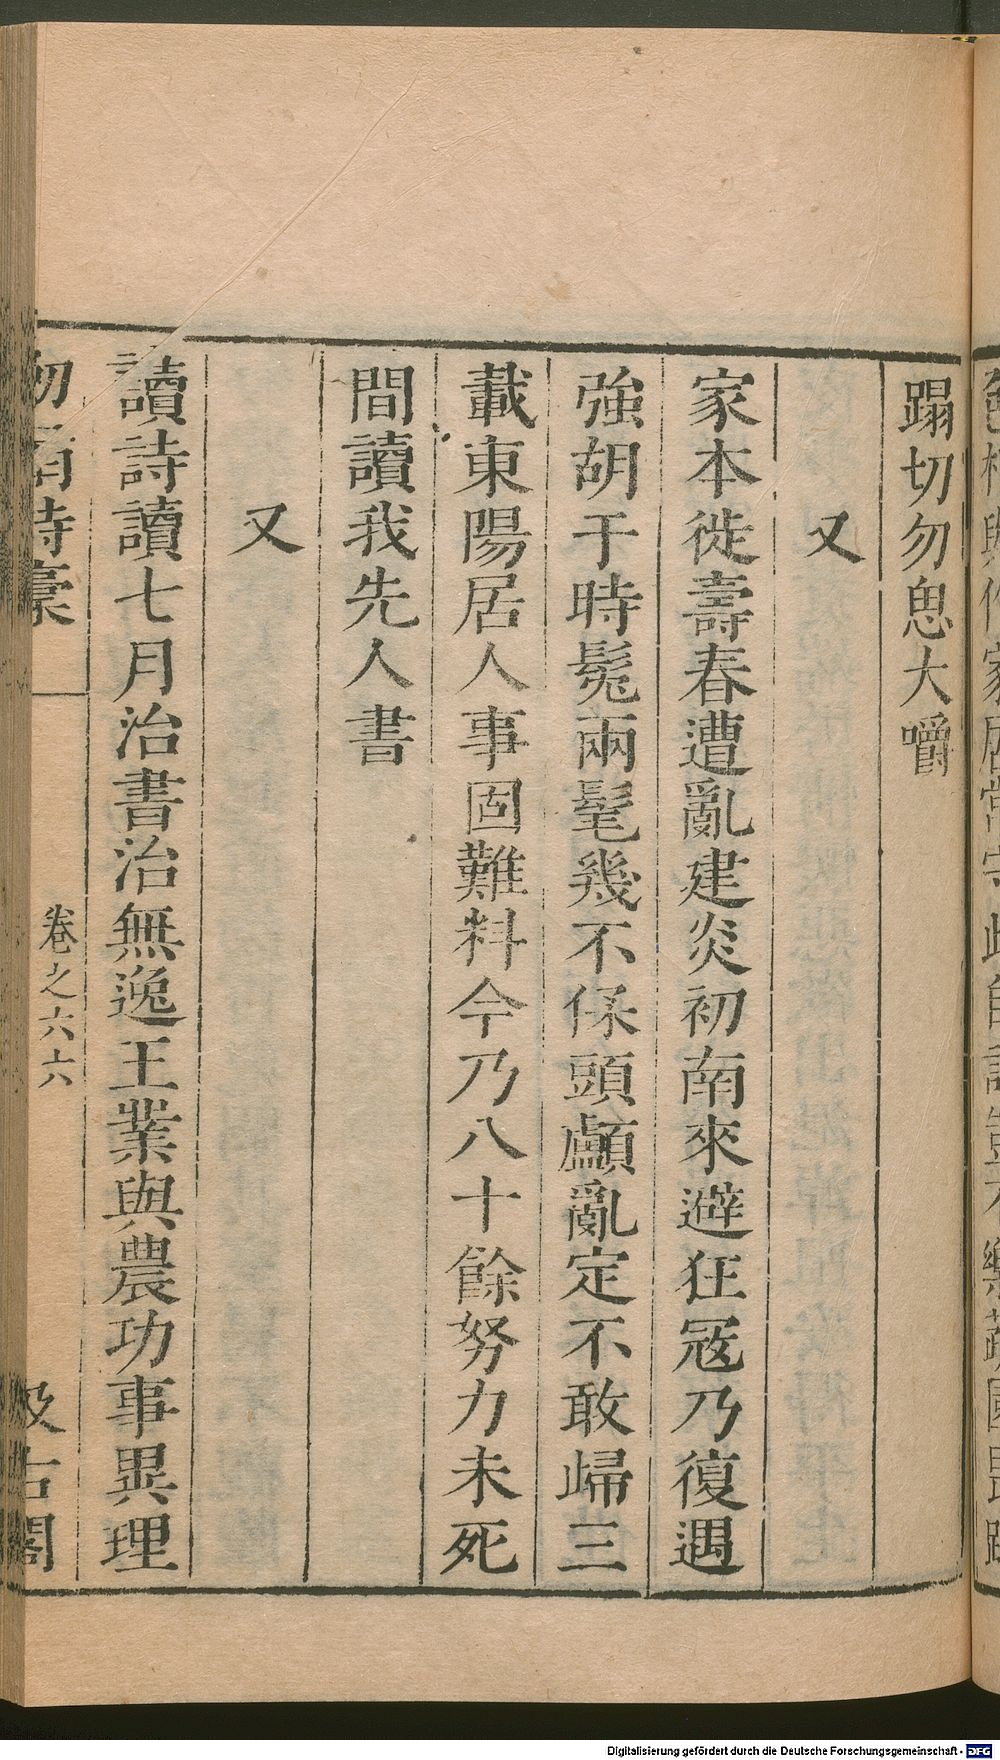 蹋切勿怱大嚼
又
家本徙壽春遭亂建炎初南來避狂冦乃復遇
強胡于時髧兩髦幾不保頭顱亂定不敢歸三
載東陽居人事固難料今乃八十餘努力未死
間讀我先人書
又
讀詩讀七月治書治無逸王業與農功事異理
卷之六 六
Digitalisierung gefördert durch die Deutsche Forschungsgemeinschaft - DFG